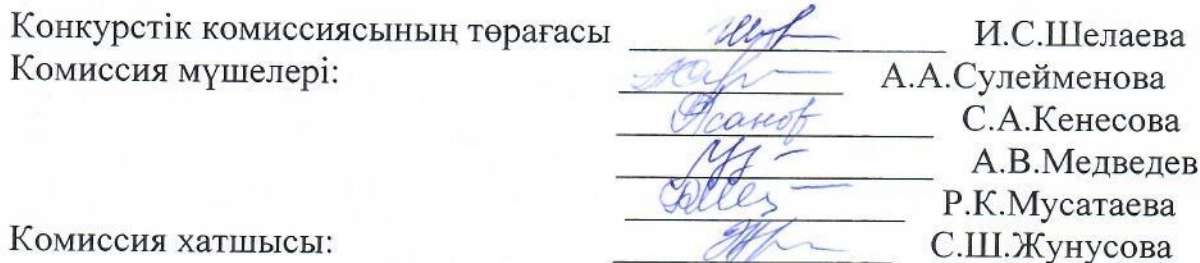 Конкурстік комиссиясының төрағасы И.С.Шелаева
Комиссия мүшелері: А.А.Сулейменова
С.А.Кенесова
А.В.Медведев
Р.К.Мусатаева
Комиссия хатшысы: С.Ш.Жунусова